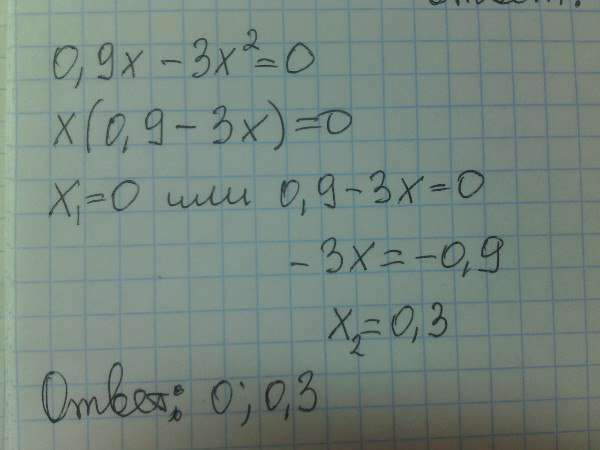 0,9x - 3x² = 0
x(0,9 - 3x) = 0
x₁ = 0 или 0,9 - 3x = 0
- 3x = - 0,9
x₂ = 0,3
Ответ: 0; 0,3